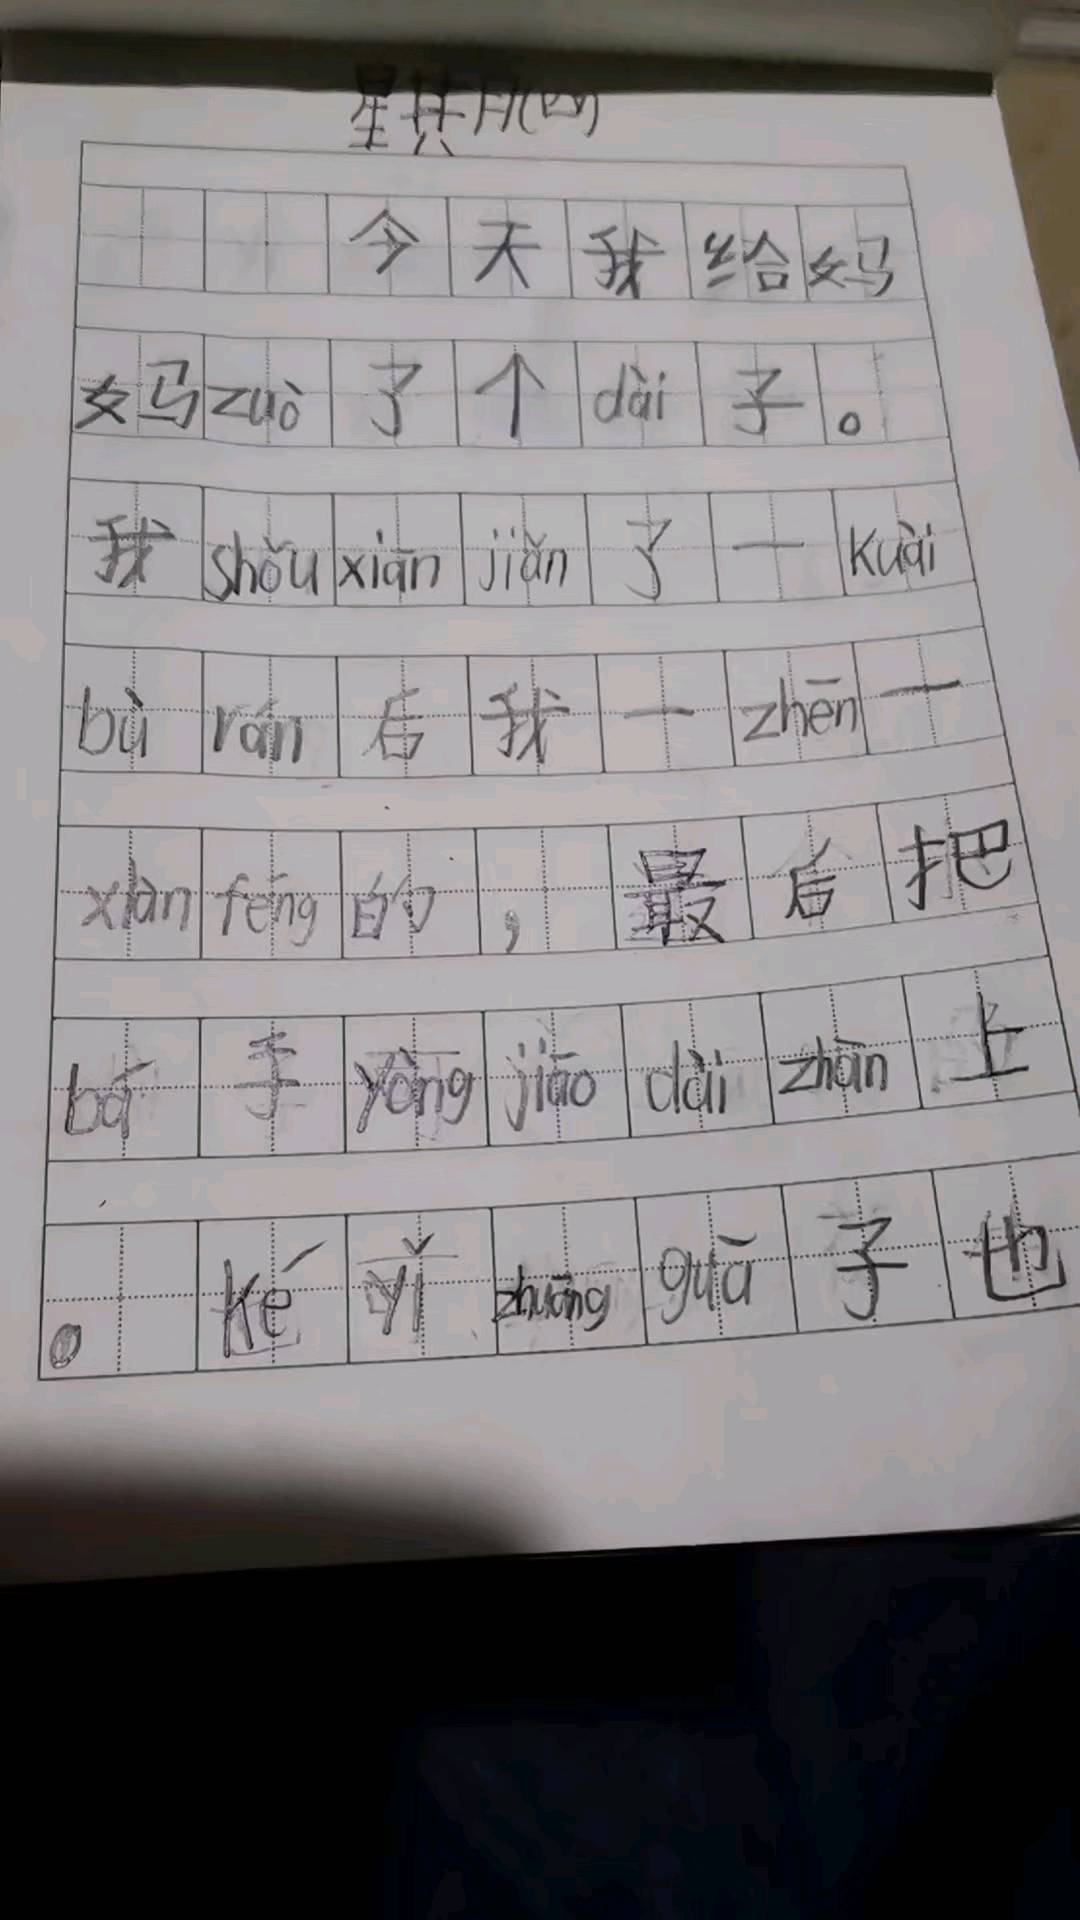 星期(四)
今天我给妈
妈zuò了个dài子。
我shǒuxiānjiǎn了一kuài
bùrán后我一zhēn一
xiànféng的，最后把
bá手yòngjiāodàizhān上
。kéyǐzhuānggуā子也